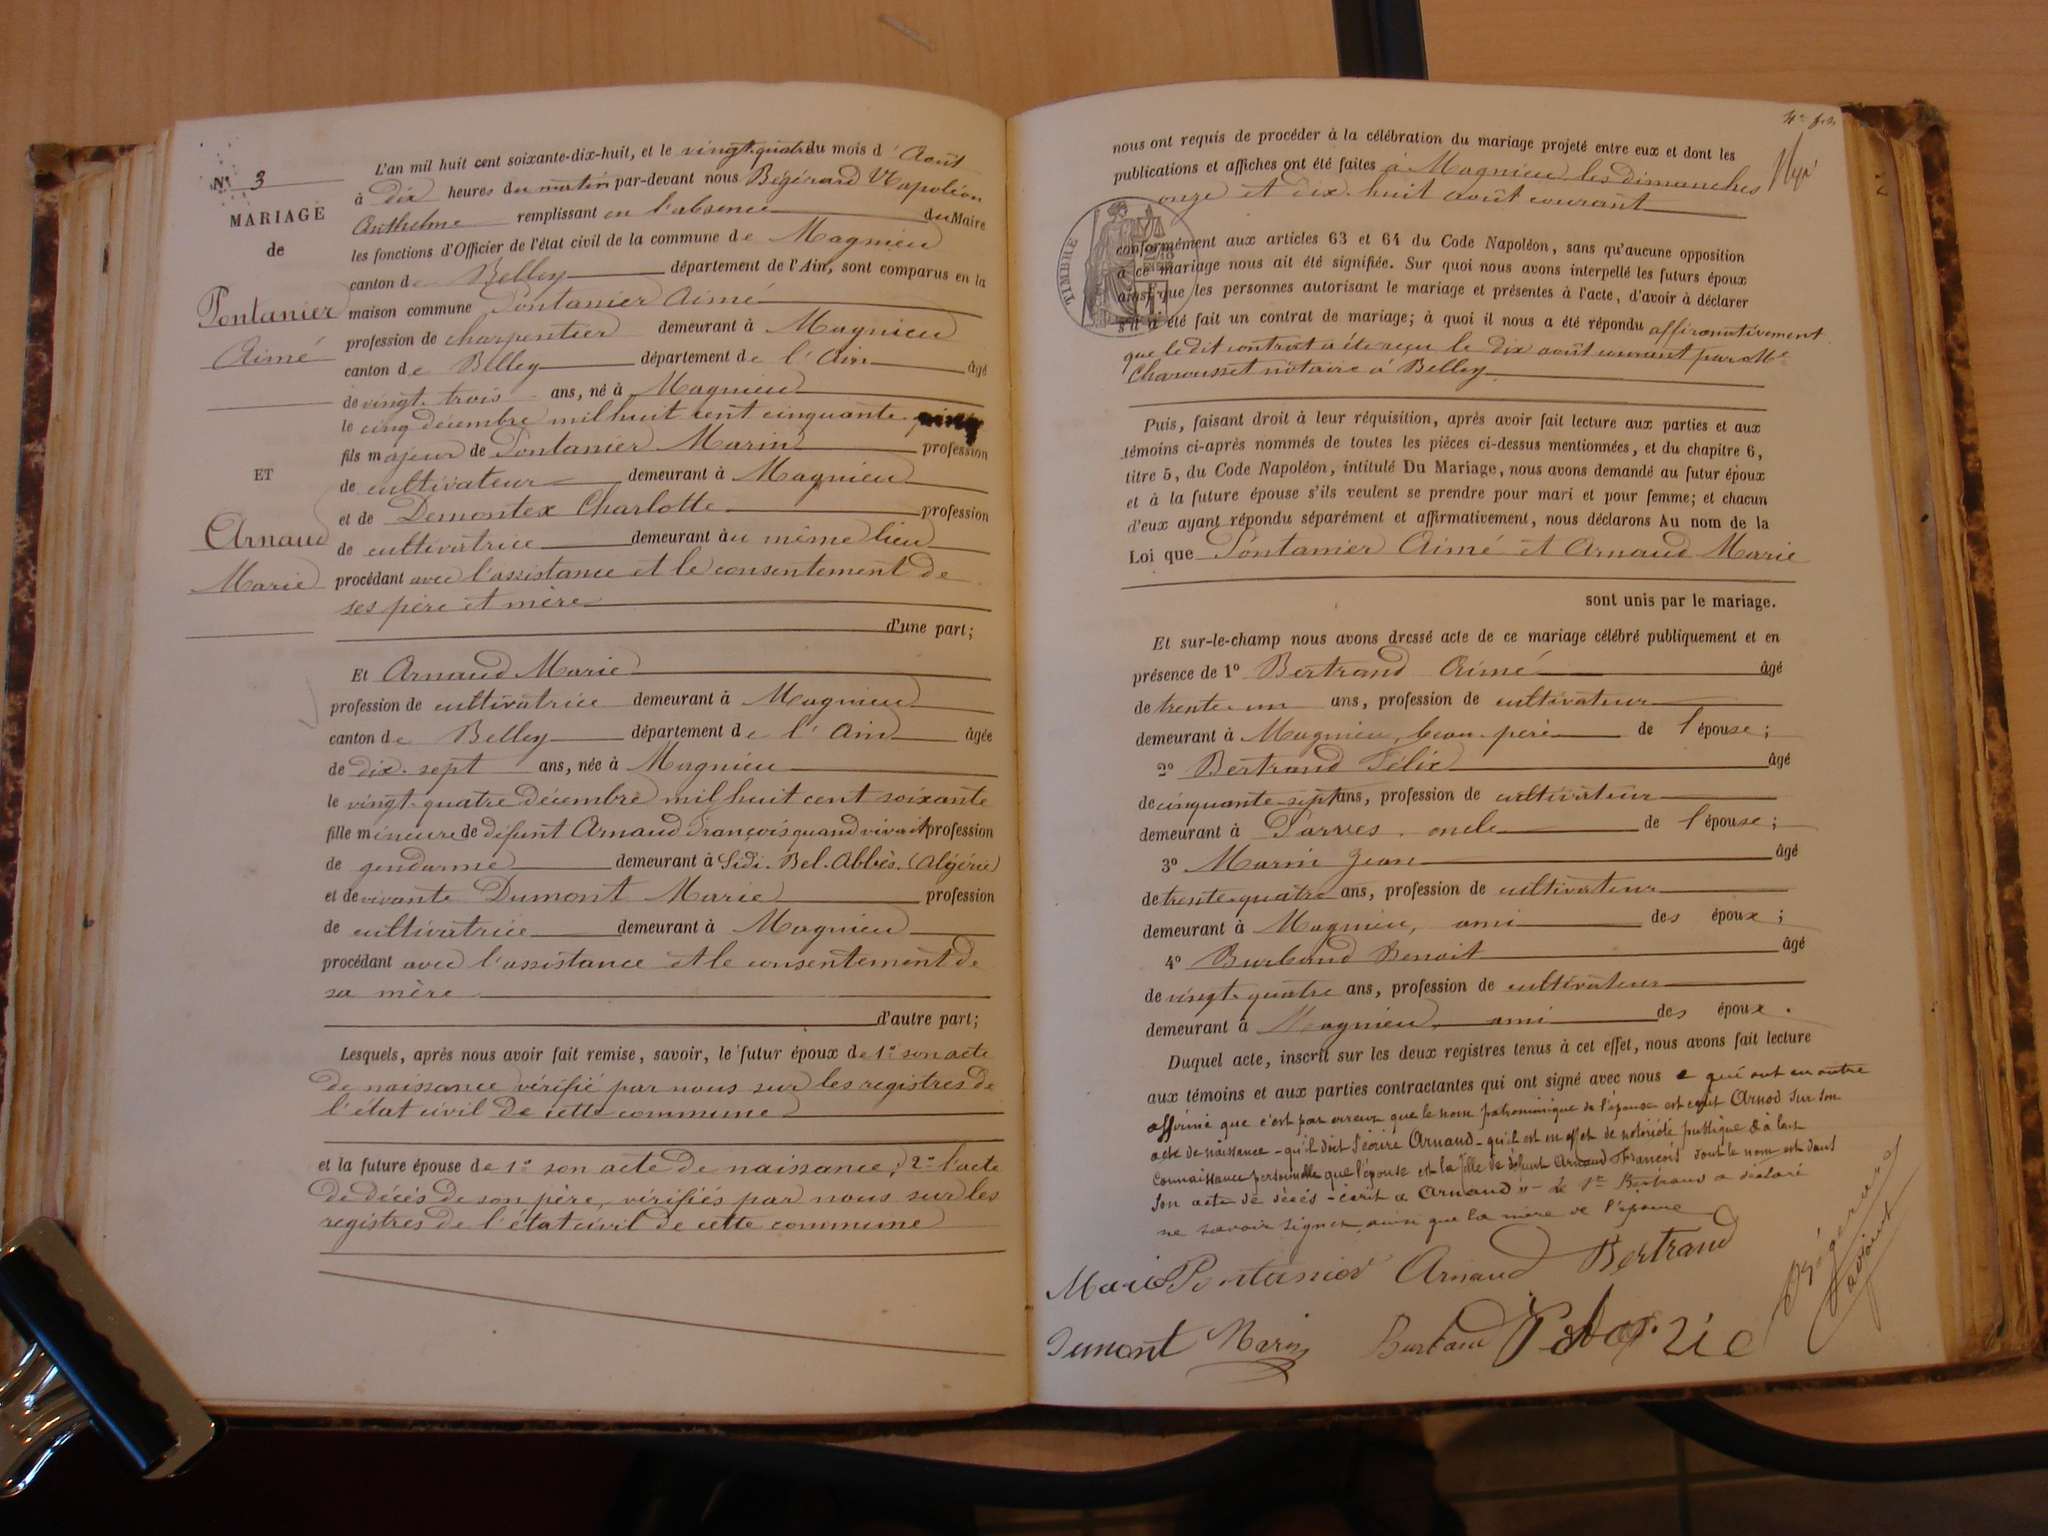 N° 3
MARIAGE
de
Pontanier
Aimé
ET
Arnaud
Marie
L'an mil huit cent soixante-dix-huit, et le vingt-quatre du mois d'Août
à dix heures du matin par-devant nous Bégérard Napoléon
Anthelme remplissant en l'absence du Maire
les fonctions d'Officier de l'état civil de la commune de Magnieu
canton de Belley département de l'Ain, sont comparus en la
maison commune Pontanier Aimé
profession de charpentier demeurant à Magnieu
canton de Belley département de l'Ain âgé
de vingt-trois ans, né à Magnieu
le cinq décembre mil huit cent cinquante
fils majeur de Pontanier Marin profession
de cultivateur demeurant à Magnieu
et de Demontex Charlotte profession
de cultivatrice demeurant au même lieu
procédant avec l'assistance et le consentement de
ses père et mère
d'une part;
Et Arnaud Marie
profession de cultivatrice demeurant à Magnieu
canton de Belley département de l'Ain âgée
de dix-sept ans, née à Magnieu
le vingt-quatre décembre mil huit cent soixante
fille mineure de défunt Arnaud François quand vivait profession
de gendarme demeurant à Sidi-Bel-Abbès (Algérie)
et de vivante Dumont Marie profession
de cultivatrice demeurant à Magnieu
procédant avec l'assistance et le consentement de
sa mère
d'autre part;
Lesquels, après nous avoir fait remise, savoir, le futur époux de 1° son acte
de naissance vérifié par nous sur les registres de
l'état civil de cette commune
et la future épouse de 1° son acte de naissance; 2° l'acte
de décès de son père, vérifiés par nous sur les
registres de l'état civil de cette commune
nous ont requis de procéder à la célébration du mariage projeté entre eux et dont les
publications et affiches ont été faites à Magnieu les dimanches
onze et dix-huit août courant
TIMBRE
conformément aux articles 63 et 64 du Code Napoléon, sans qu'aucune opposition
à ce mariage nous ait été signifiée. Sur quoi nous avons interpellé les futurs époux
ainsi que les personnes autorisant le mariage et présentes à l'acte, d'avoir à déclarer
s'il a été fait un contrat de mariage; à quoi il nous a été répondu affirmativement
que le dit contrat a été reçu le dix août courant par Me
Charousset notaire à Belley
Puis, faisant droit à leur réquisition, après avoir fait lecture aux parties et aux
témoins ci-après nommés de toutes les pièces ci-dessus mentionnées, et du chapitre 6,
titre 5, du Code Napoléon, intitulé Du Mariage, nous avons demandé au futur époux
et à la future épouse s'ils veulent se prendre pour mari et pour femme; et chacun
d'eux ayant répondu séparément et affirmativement, nous déclarons Au nom de la
Loi que Pontanier Aimé et Arnaud Marie
sont unis par le mariage.
Et sur-le-champ nous avons dressé acte de ce mariage célébré publiquement et en
présence de 1° Bertrand Aimé âgé
de trente-un ans, profession de cultivateur
demeurant à Magnieu, beau-père de l'épouse;
2° Bertrand Félix âgé
de cinquante-sept ans, profession de cultivateur
demeurant à Parves, oncle de l'épouse;
3° Marin Jean âgé
de trente-quatre ans, profession de cultivateur
demeurant à Magnieu, ami des époux;
4° Burbaud Benoit âgé
de vingt-quatre ans, profession de cultivateur
demeurant à Magnieu, ami des époux.
Duquel acte, inscrit sur les deux registres tenus à cet effet, nous avons fait lecture
aux témoins et aux parties contractantes qui ont signé avec nous e qui ont en outre
affirmé que c'est par erreur que le nom patronimique de l'épouse est écrit Arnod sur son
acte de naissance - qu'il doit s'écrire Arnaud - qu'il est en effet de notoriété publique & à leur
connaissance personnelle que l'épouse est la fille de défunt Arnaud François dont le nom est dans
son acte de décès - écrit « Arnaud » - Le Sr Bertrand a déclaré
ne savoir signer ainsi que la mère de l'épouse
Marie Pontanier Arnaud Bertrand
Dumont Marin Burbaud
Bégérard
adjoint